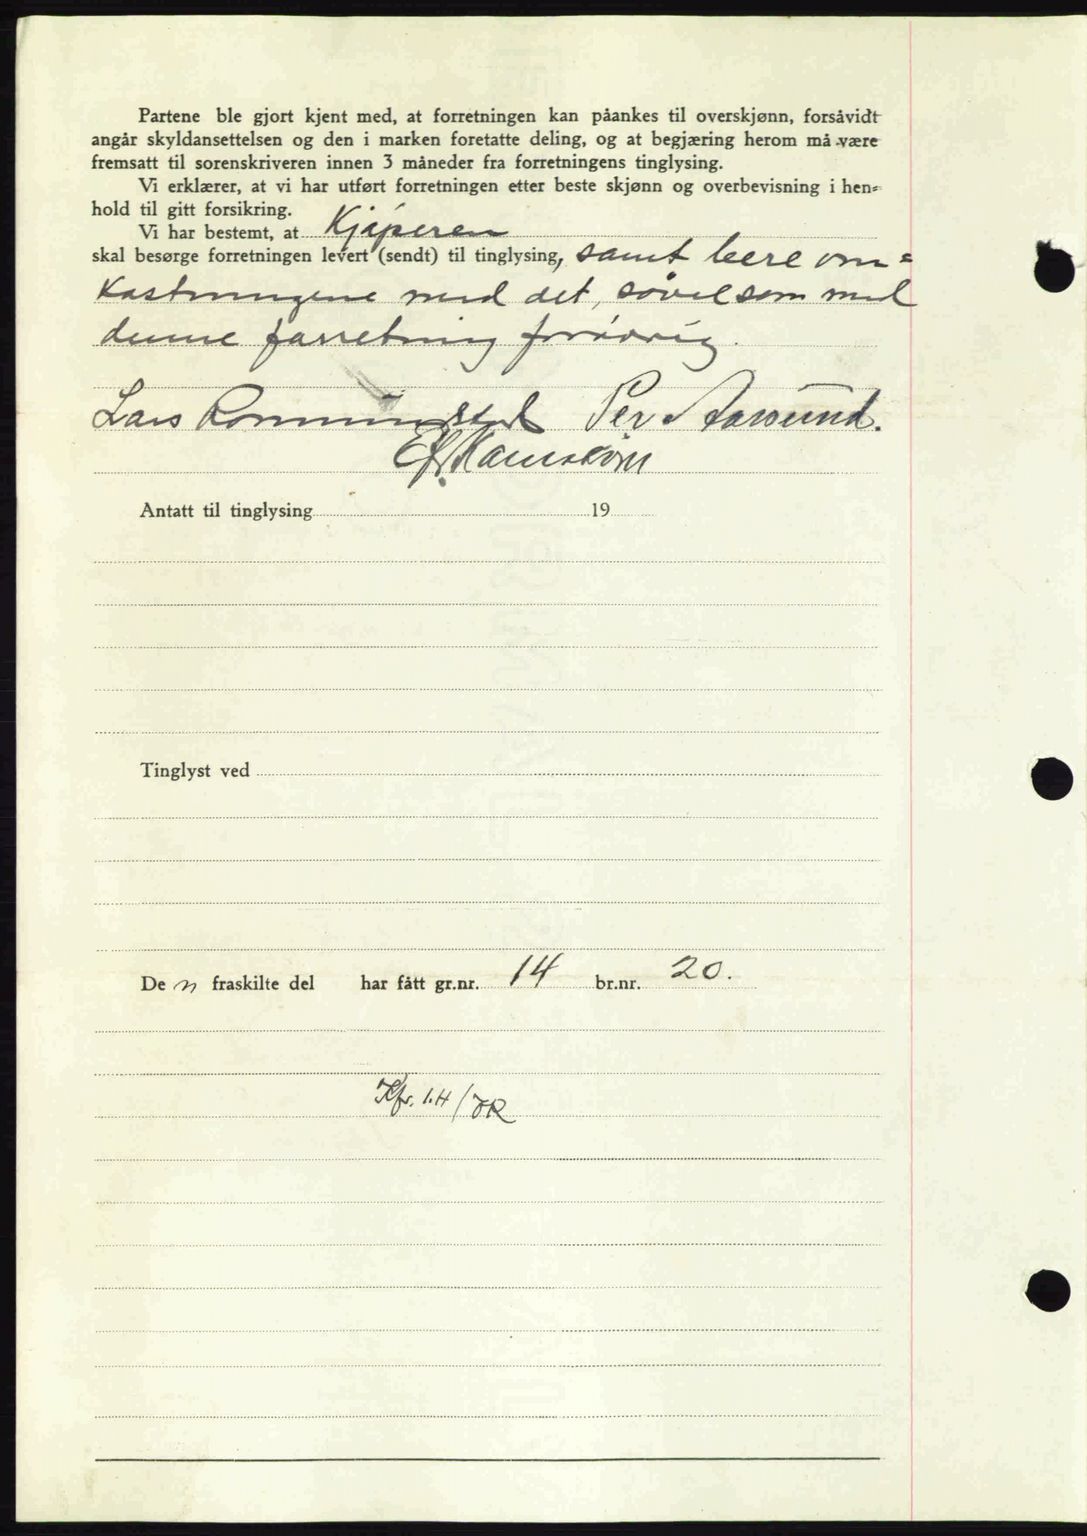 Partene ble gjort kjent med, at forretningen kan påankes til overskjønn, forsåvidt
angår skyldansettelsen og den i marken foretatte deling, og at begjæring herom må være
fremsatt til sorenskriveren innen 3 måneder fra forretningens tinglysing.
Vi erklærer, at vi har utført forretningen etter beste skjønn og overbevisning i hen-
hold til gitt forsikring.
Vi har bestemt, at Kjøperen
skal besørge forretningen levert (sendt) til tinglysing, samt bere om=
kostningene med det, såvel som med
denne forretning forøvrig.
Lars Per
Antatt til tinglysing 19
Tinglyst ved
De n fraskilte del har fått gr.nr. 14 br.nr. 20.
Kfr. I.H/